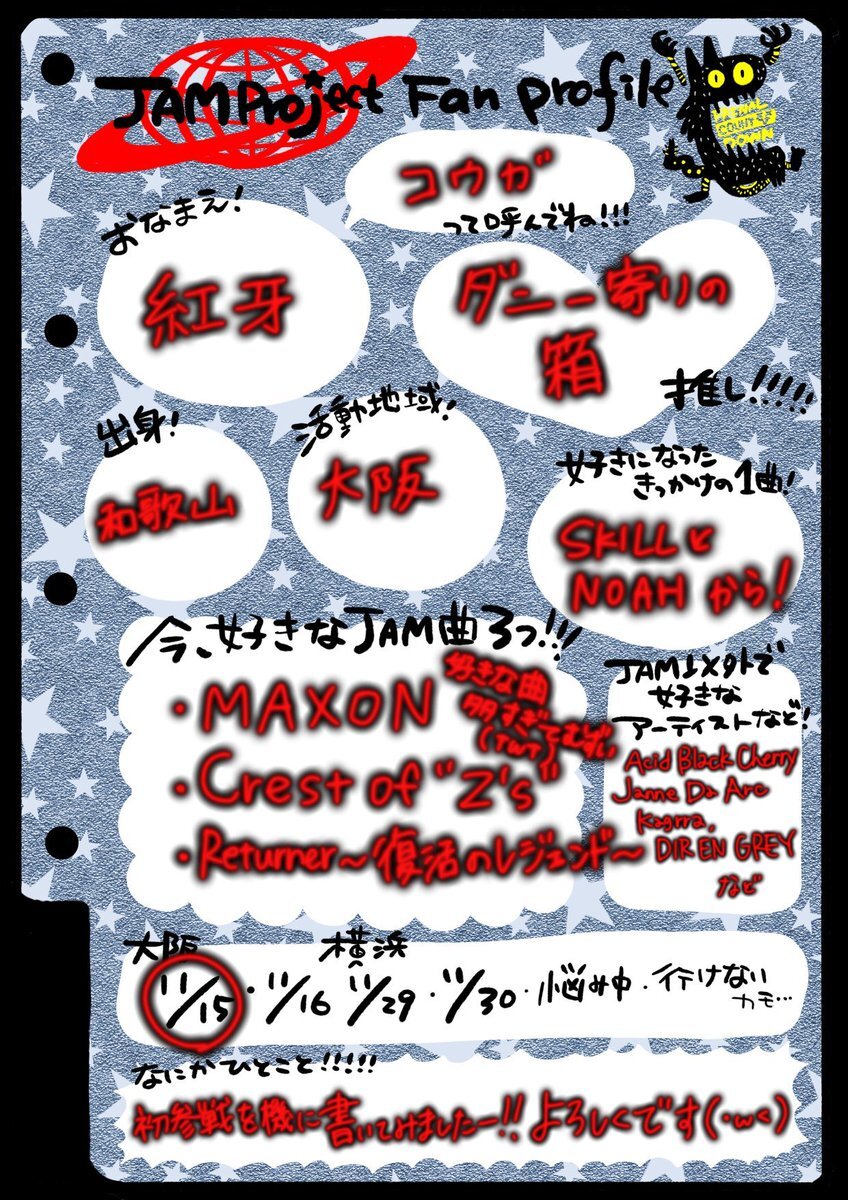 JAM Project Fan profile
FINAL
COUNTER
DOWN
コウガ
って呼んでね!!!
おなまえ!
紅牙
ダニー寄りの
箱
推し!!!!!
出身!
和歌山
活動地域!
大阪
好きになった
きっかけの1曲!
SKILLと
NOAHから!
今、好きなJAM曲3つ!!!
・MAXON
好きな曲
多すぎて
むずい
(TwT)
・Crest of "Z's"
・Returner~復活のレジェンド~
JAM以外で
好きな
アーティストなど!
Acid Black Cherry
Janne Da Arc
Kagrra,
DIR EN GREY
など
大阪 横浜
11/15・11/16 11/29・11/30・悩み中・行けない
カモ…
なにかひとこと!!!!!
初参戦を機に書いてみましたー!!よろしくです(・w<)